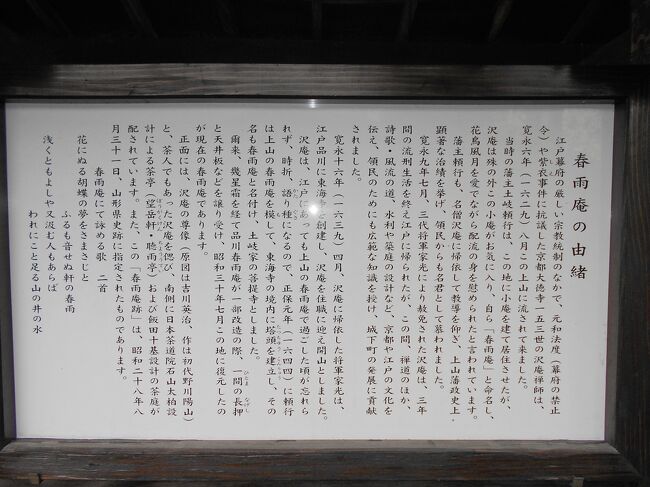 春雨庵の由緒
江戸幕府の厳しい宗教統制のなかで、元和法度（幕府の禁止
令）や紫衣事件に抗議した京都大徳寺一五三世の沢庵禅師は、
寛永六年（一六二九）八月この上山に流されて来ました。
当時の藩主土岐頼行は、この地に小庵を建て居住させたが、
沢庵は殊の外この小庵がお気に入り、自ら「春雨庵」と命名し、
花鳥風月を愛でながら配流の身を慰められたと言われています。
藩主頼行も、名僧沢庵に帰依して教導を仰ぎ、上山藩政史上・
顕著な治績を挙げ、領民からも名君として慕われました。
寛永九年七月、三代将軍家光により赦免された沢庵は、三年
間の流刑生活を終え江戸に帰られたが、この間、禅道のほか、
詩歌・風流の道、水利や築庭の設計など、京都や江戸の文化を
伝え、領民のためにも広範な知識を授け、城下町の発展に貢献
されました。
寛永十六年（一六三九）四月、沢庵に帰依した将軍家光は、
江戸品川に東海寺を創建し、沢庵を住職に迎え開山としました。
沢庵は、江戸にあっても上山の春雨庵で過ごした頃が忘れら
れず、時折、語り種になるので、正保元年（一六四四）に頼行
は上山の春雨庵を模して、東海寺の境内に塔頭を建立し、その
名も春雨庵と名付け、土岐家の菩提寺としました。
爾来、幾星霜を経て品川春雨庵が一部改造の際、一間の長押
と天井板などを譲り受け、昭和三十年七月この地に復元したの
が現在の春雨庵であります。
正面には、沢庵の尊像（原図は吉川英治、作は初代野川陽山）
と、茶人でもあった沢庵を偲び、南側に日本茶道院石山太柏設
計による茶亭（望岳軒・聴雨亭）および飯田十基設計の茶庭が
配されています。また、この「春雨庵跡」は、昭和二十八年八
月三十一日、山形県史跡に指定されたものであります。
春雨庵にて詠める歌　二首
花にぬる胡蝶の夢をさまさじと
ふるも音せぬ軒の春雨
浅くともよしや又汲む人もあらば
われにこと足る山の井の水